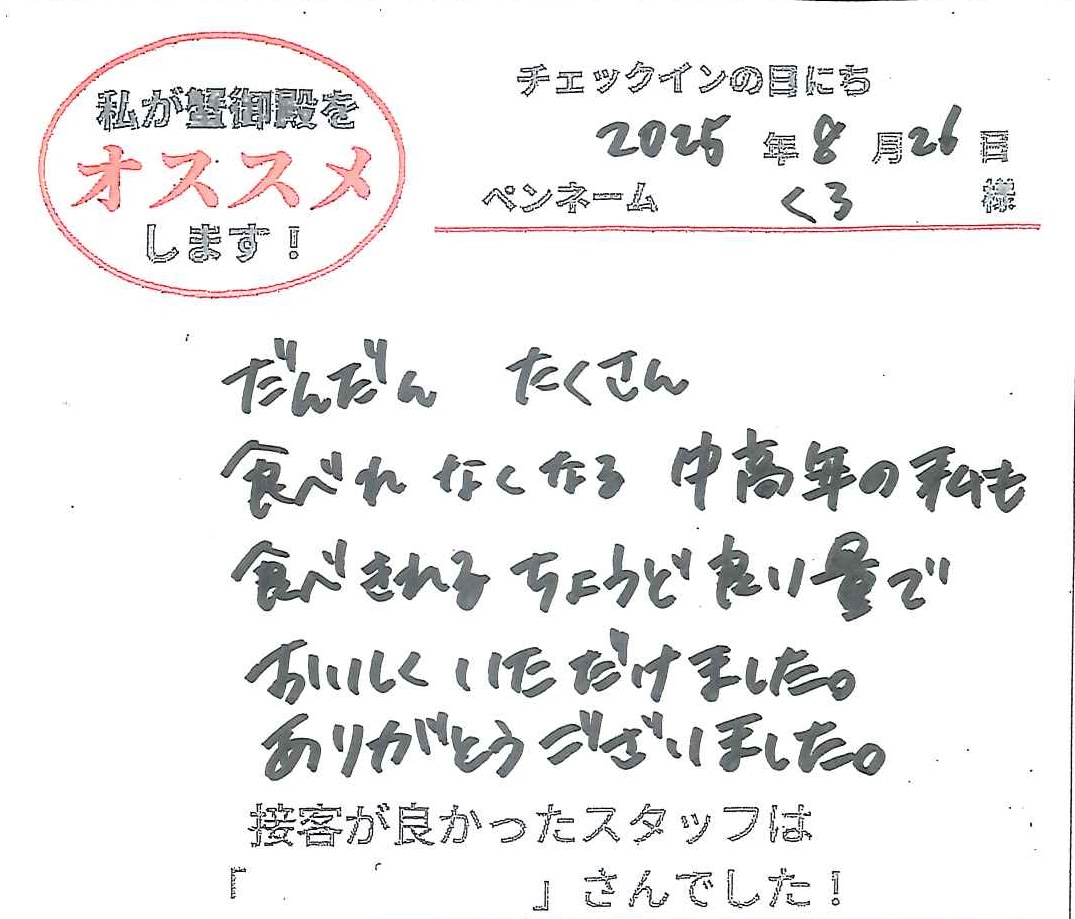 私が蟹御殿を
オススメ
します！
チェックインの日にち
2025年8月26日
ペンネーム くろ 様
だんだん たくさん
食べれなくなる 中高年の私も
食べきれる ちょうど良い量で
おいしく いただけました。
ありがとうございました。
接客が良かったスタッフは
「 」さんでした！